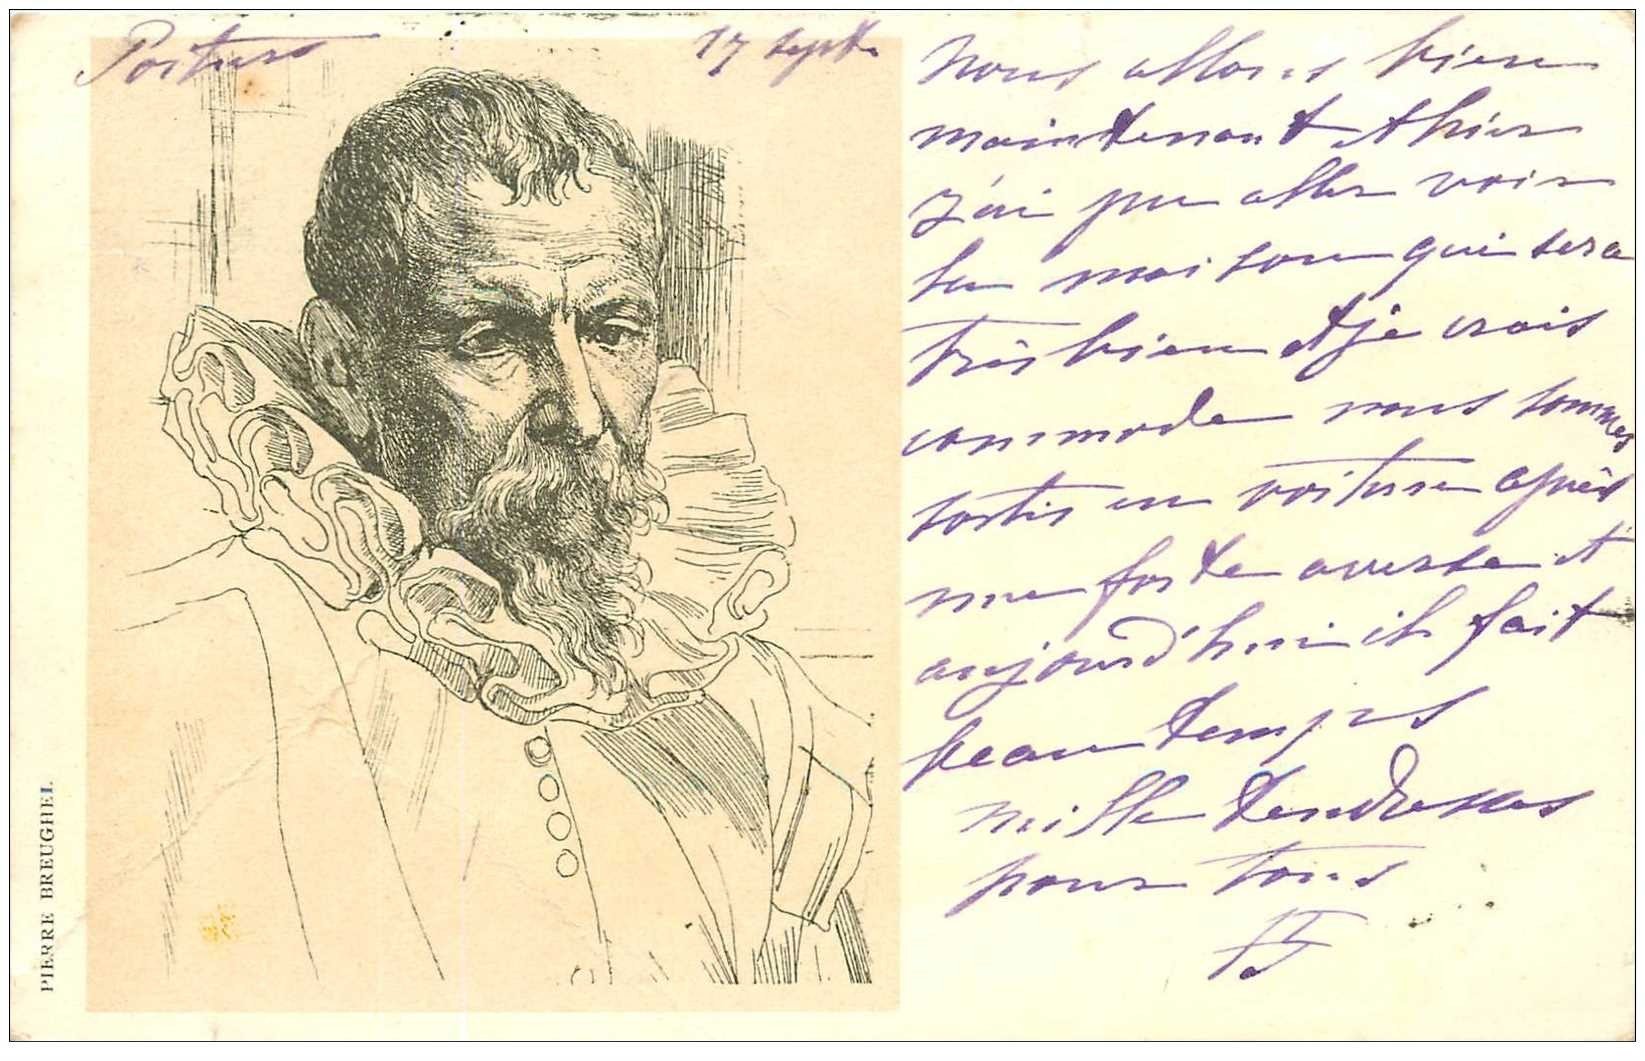 Poitiers 17 septe
nous allons bien
maintenant et hier
j'ai pu aller voir
la maison qui sera
très bien et je crois
commode nous sommes
sortis en voiture après
une forte averse et
aujourd'hui il fait
beau temps
mille tendresses
pour tous
PIERRE BREUGHEL